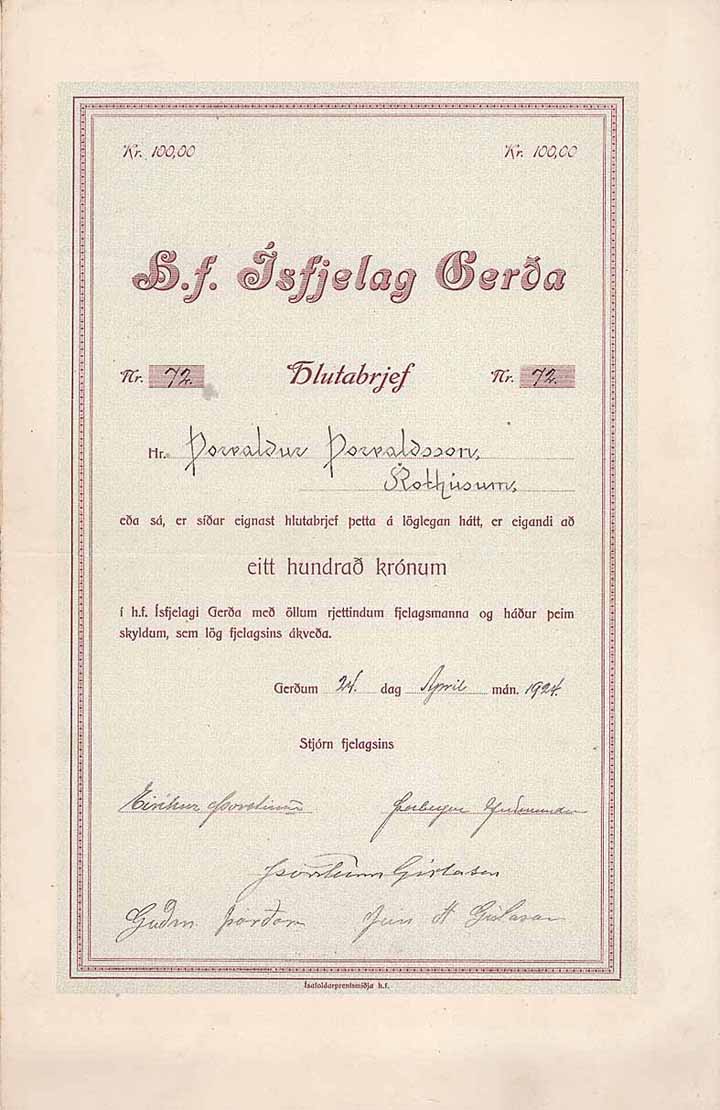 Kr. 100,00 Kr. 100,00
H.f. Ísfjelag Gerða
Nr. 72. Hlutabrjef Nr. 72.
Hr. Þorvaldur Þorvaldsson,
Kothúsum,
eða sá, er síðar eignast hlutabrjef þetta á löglegan hátt, er eigandi að
eitt hundrað krónum
í h.f. Ísfjelagi Gerða með öllum rjettindum fjelagsmanna og háður þeim
skyldum, sem lög fjelagsins ákveða.
Gerðum 24. dag April mán. 1924.
Stjórn fjelagsins
Eiríkur Þorsteinss Þorbergur Guðmundss
Þorsteinn Gíslason
Guðm. Þórðars Jón H Gíslason
Ísafoldarprentsmiðja h.f.